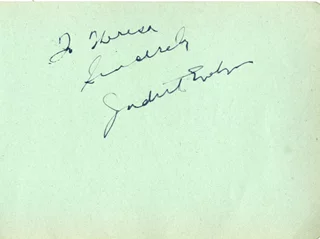 To Theresa
Sincerely
Judith Evelyn